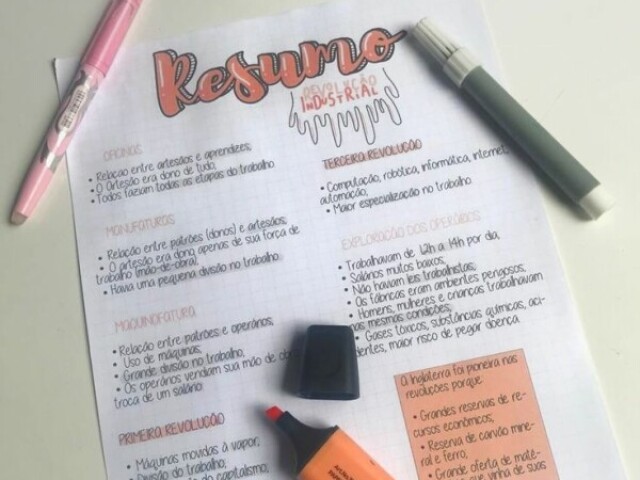 Resumo
REVOLUÇÃO
INDUSTRIAL
OFICINAS
• Relação entre artesãos e aprendizes;
• O Artesão era dono de tudo;
• Todos faziam todas as etapas do trabalho
MANUFATURAS
• Relação entre patrões (donos) e artesãos;
• O artesão era dono apenas de sua força de
trabalho (mão-de-obra);
• Havia uma pequena divisão no trabalho.
MAQUINOFATURA
• Relação entre patrões e operários;
• Uso de máquinas;
• Grande divisão no trabalho;
• Os operários vendiam sua mão de
troca de um salário.
PRIMEIRA REVOLUÇÃO
• Máquinas movidas à vapor;
• Divisão do trabalho;
do capitalismo;
TERCEIRA REVOLUÇÃO
• Computação, robótica, informática, internet,
automação;
• Maior especialização no trabalho
EXPLORAÇÃO DOS OPERÁRIOS
• Trabalhavam de 12h a 14h por dia;
• Salários muitos baixos;
• Não haviam leis trabalhistas;
• As fábricas eram ambientes perigosos;
• Homens, mulheres e crianças trabalhavam
nas mesmas condições;
• Gases tóxicos, substâncias químicas, aci-
dentes, maior risco de pegar doença.
A Inglaterra foi pioneira nas
revoluções porque:
• Grandes reservas de re-
cursos econômicos;
• Reserva de carvão mine-
ral e ferro;
• Grande oferta de maté-
que vinha de suas